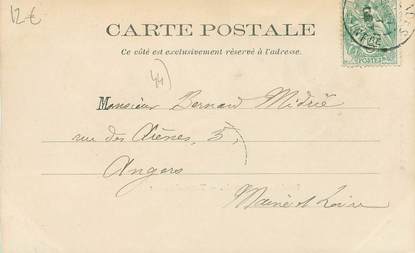 12€
CARTE POSTALE
Ce côté est exclusivement réservé à l'adresse.
44)
Monsieur Bernard Midrie
rue des Arènes, 5,
Angers
Maine et Loire
POSTES